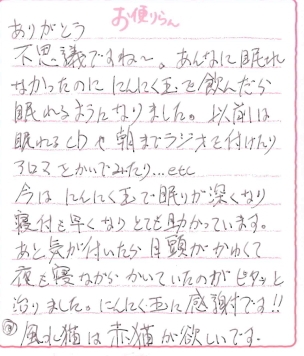 お便りらん
ありがとう
不思議ですね〜。あんなに眠れ
なかったのに にんにく玉を飲んだら
眠れるようになりました。以前は
眠れるCDや朝までラジオを付けたり
アロマをかいでみたり…etc
今は にんにく玉で眠りが深くなり
寝付も早くなり とても助かっています。
あと気が付いたら 目頭がかゆくて
夜も寝ながら かいていたのが ピタッと
治りました。にんにく玉に感謝です!!
風水猫は赤猫が欲しいです。